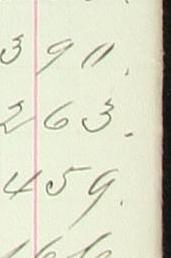 391.
263.
459.